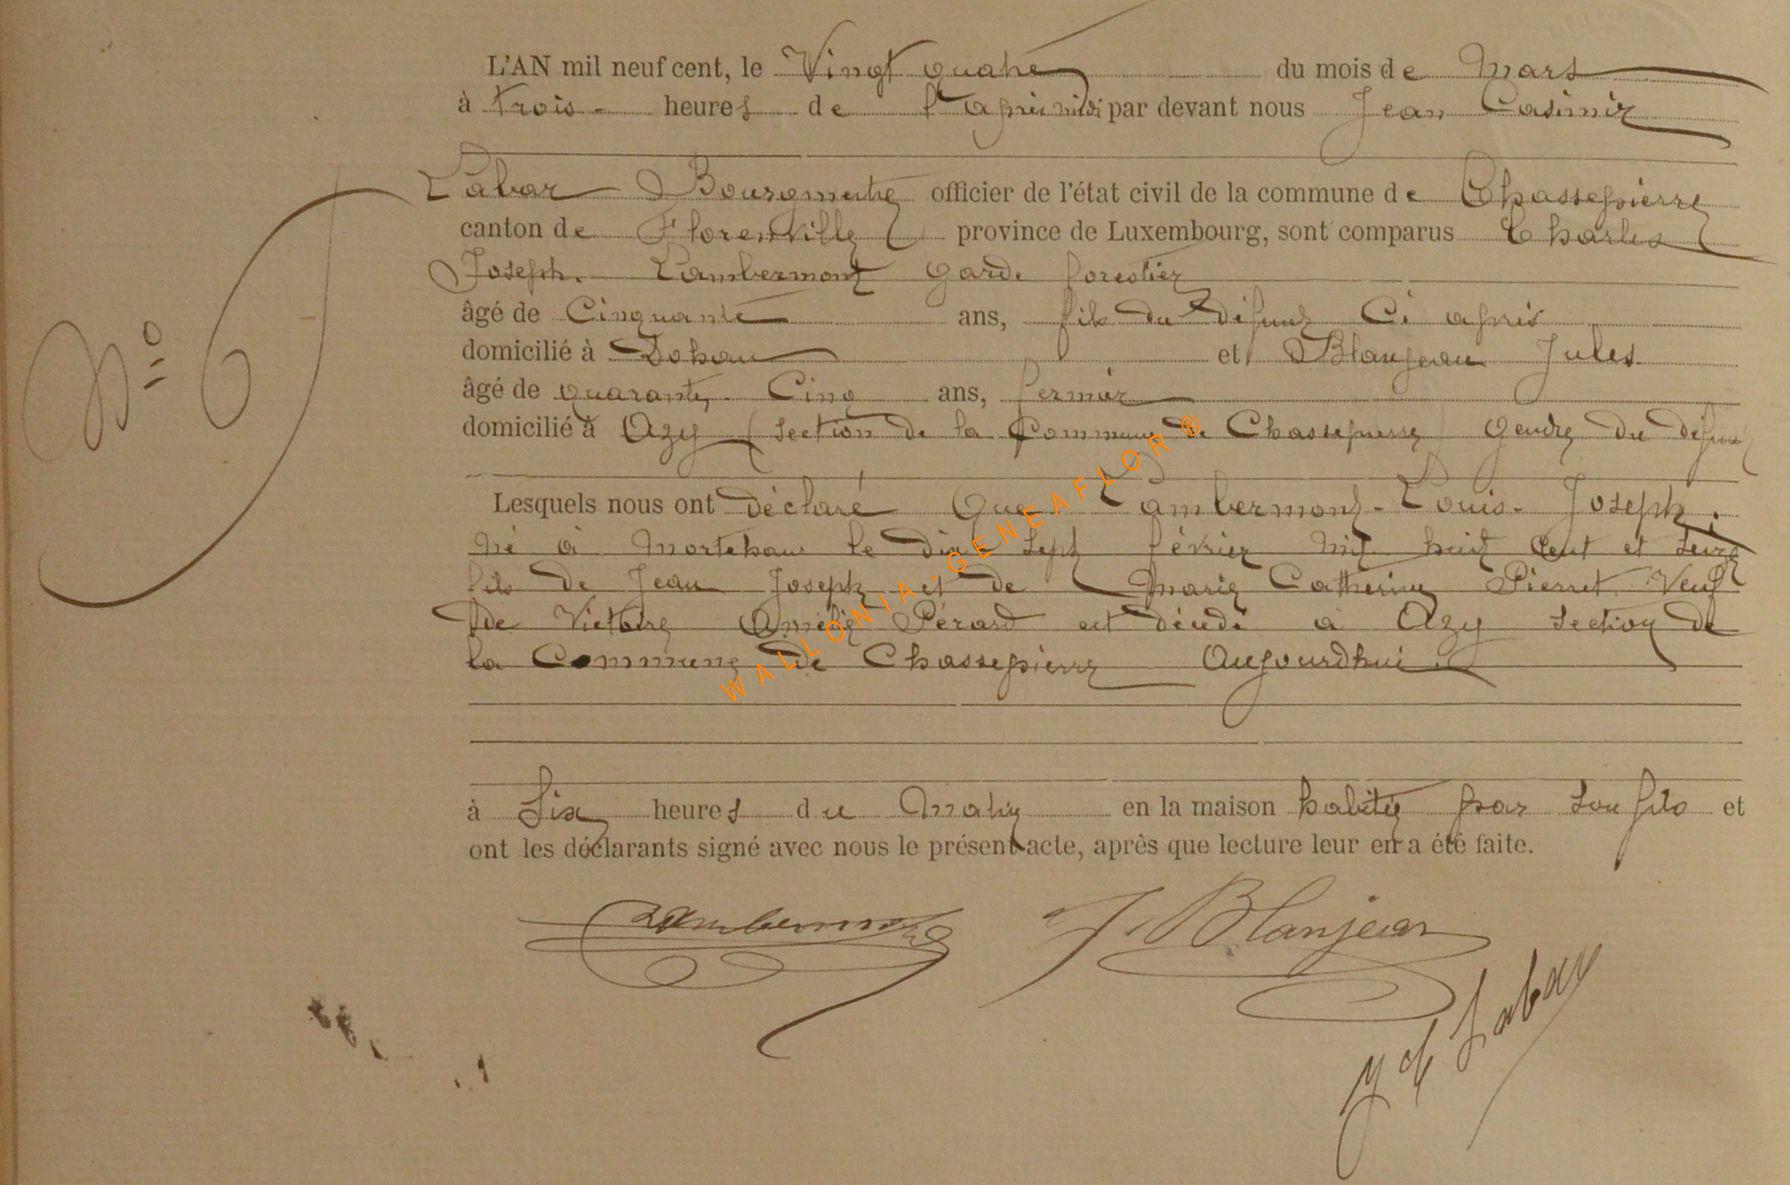 L'AN mil neuf cent, le Vingt quatre du mois de Mars
à trois heures de l'après midi par devant nous Jean Casimir
Labar Bourgmestre officier de l'état civil de la commune de Chassepierre
canton de Florenville province de Luxembourg, sont comparus Charles
Joseph. Lambermont Garde forestier
âgé de Cinquante ans, fils du défunt Ci après
domicilié à Dohan et Blanjean Jules
N° 6
âgé de quarante Cinq ans, fermier
domicilié à Azy (section de la Commune de Chassepierre) Gendre du défunt
Lesquels nous ont déclaré Que Lambermont - Louis - Joseph.
né à Mortehan le dix sept février Mil huit Cent et seize
fils de Jean Joseph et de Marie Catherine Pierret Veuf
de Victoire Amélie Pérard est décédé à Azy section de
la Commune de Chassepierre Aujourdhui
WALLONIA-GENEAFLOR®
à Six heures du Matin en la maison habitée par son fils et
ont les déclarants signé avec nous le présent acte, après que lecture leur en a été faite.
Lambermont J. Blanjean
J C Labar